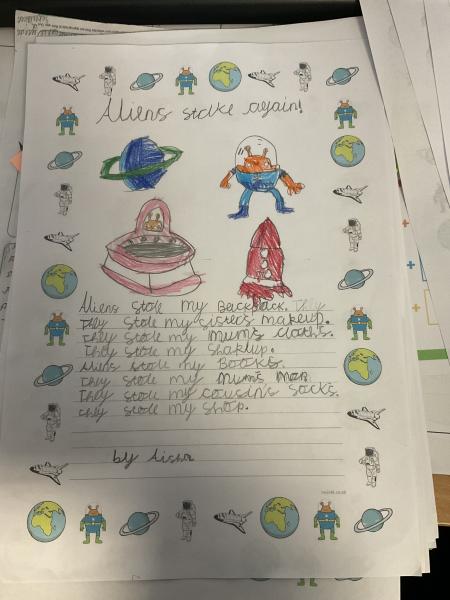 Aliens stroke again!
Aliens stole my Backpack. They
They stole my sister's makeup.
They stole my mum's cloths.
They stole my shakup.
Aliens stole my Books.
They stole my mums man.
They stole my cousin's socks.
they stole my shop.
by